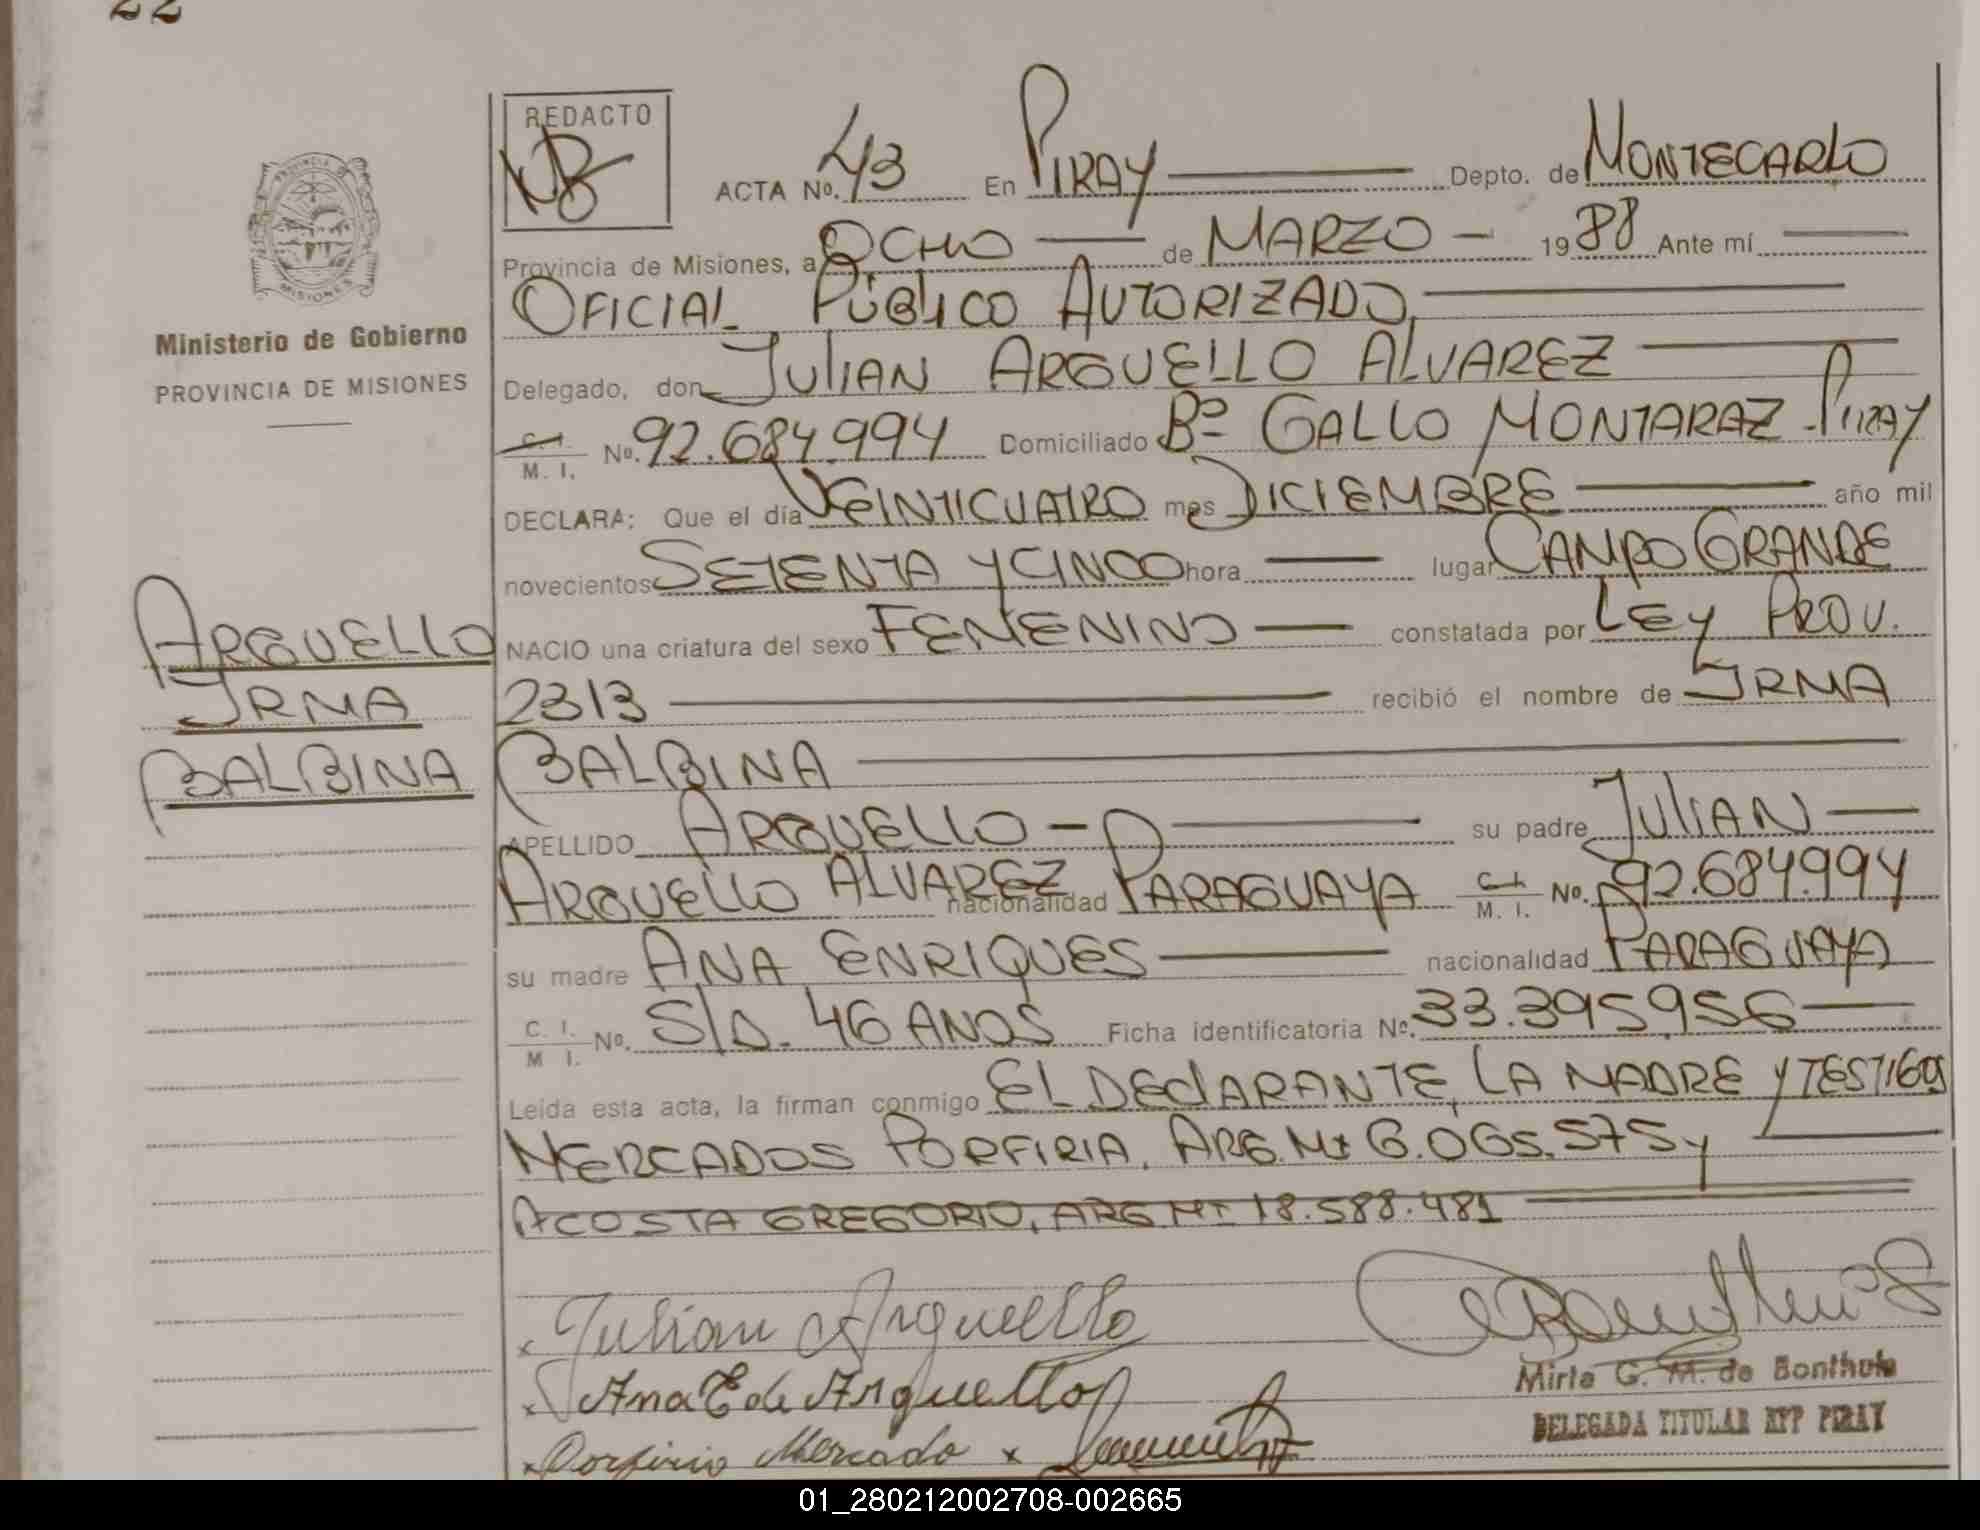 22
REDACTO
ACTA Nº. 43 En PIRAY Depto. de MONTECARLO
Provincia de Misiones, a OCHO de MARZO - 1988 Ante mí
OFICIAL PÚBLICO AUTORIZADO,
Delegado, don JULIAN ARGUELLO ALVAREZ
C. I. M. I. Nº. 92.684.994 Domiciliado Bº GALLO MONTARAZ - PIRAY
DECLARA: Que el día VEINTICUATRO mes DICIEMBRE año mil
novecientos SETENTA Y CINCO hora lugar CAMPO GRANDE
NACIO una criatura del sexo FEMENINO constatada por LEY PROV.
2313 recibió el nombre de IRMA
BALBINA
APELLIDO ARGUELLO - su padre JULIAN
ARGUELLO ALVAREZ nacionalidad PARAGUAYA C. I. M. I. Nº. 92.684.994
su madre ANA ENRIQUES nacionalidad PARAGUAYA
C. I. M I. Nº. S/D. 46 ANOS Ficha identificatoria Nº. 33.395956
Leída esta acta, la firman conmigo EL DECLARANTE, LA MADRE Y TESTIGOS
MERCADOS PORFIRIA. ARG. MI 6.065.575 Y
ACOSTA GREGORIO, ARG MI 18.588.481
x Julian Arguello
x Ana E de Arguello
x Porfirio Mercado x
Mirta G. M. de Bonthuis
DELEGADA TITULAR RPP PIRAY
PROVINCIA DE
MISIONES
Ministerio de Gobierno
PROVINCIA DE MISIONES
ARGUELLO
IRMA
BALBINA
01_280212002708-002665